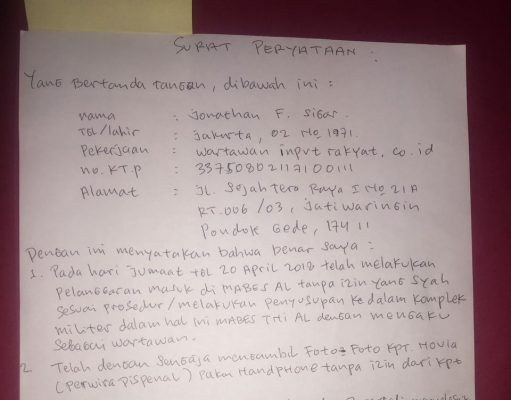 SURAT PERYATAAN :
Yang Bertanda tangan, dibawah ini :
nama : Jonathan F. Sigar.
TGL/lahir : Jakarta, 02 No 1971.
Pekerjaan : wartawan input rakyat.co.id
no. K.T.P : 3375080211710011
Alamat : JL. Sejahtera Raya I No 21A
RT.006/03, Jatiwaringin
Pondok Gede, 17411
Dengan ini menyatakan bahwa benar saya :
1. Pada hari Jumaat TGL 20 April 2018 telah melakukan
Pelanggaran masuk di MABES AL tanpa izin yang syah
sesuai prosedur/melakukan penyusupan ke dalam komplek
militer dalam hal ini MABES TNI AL dengan mengaku
sebagai wartawan.
2 Telah dengan sengaja mengambil Foto-Foto KPT. Hovia
(perwira Dispenal) Pakai Handphone tanpa izin dari KPT